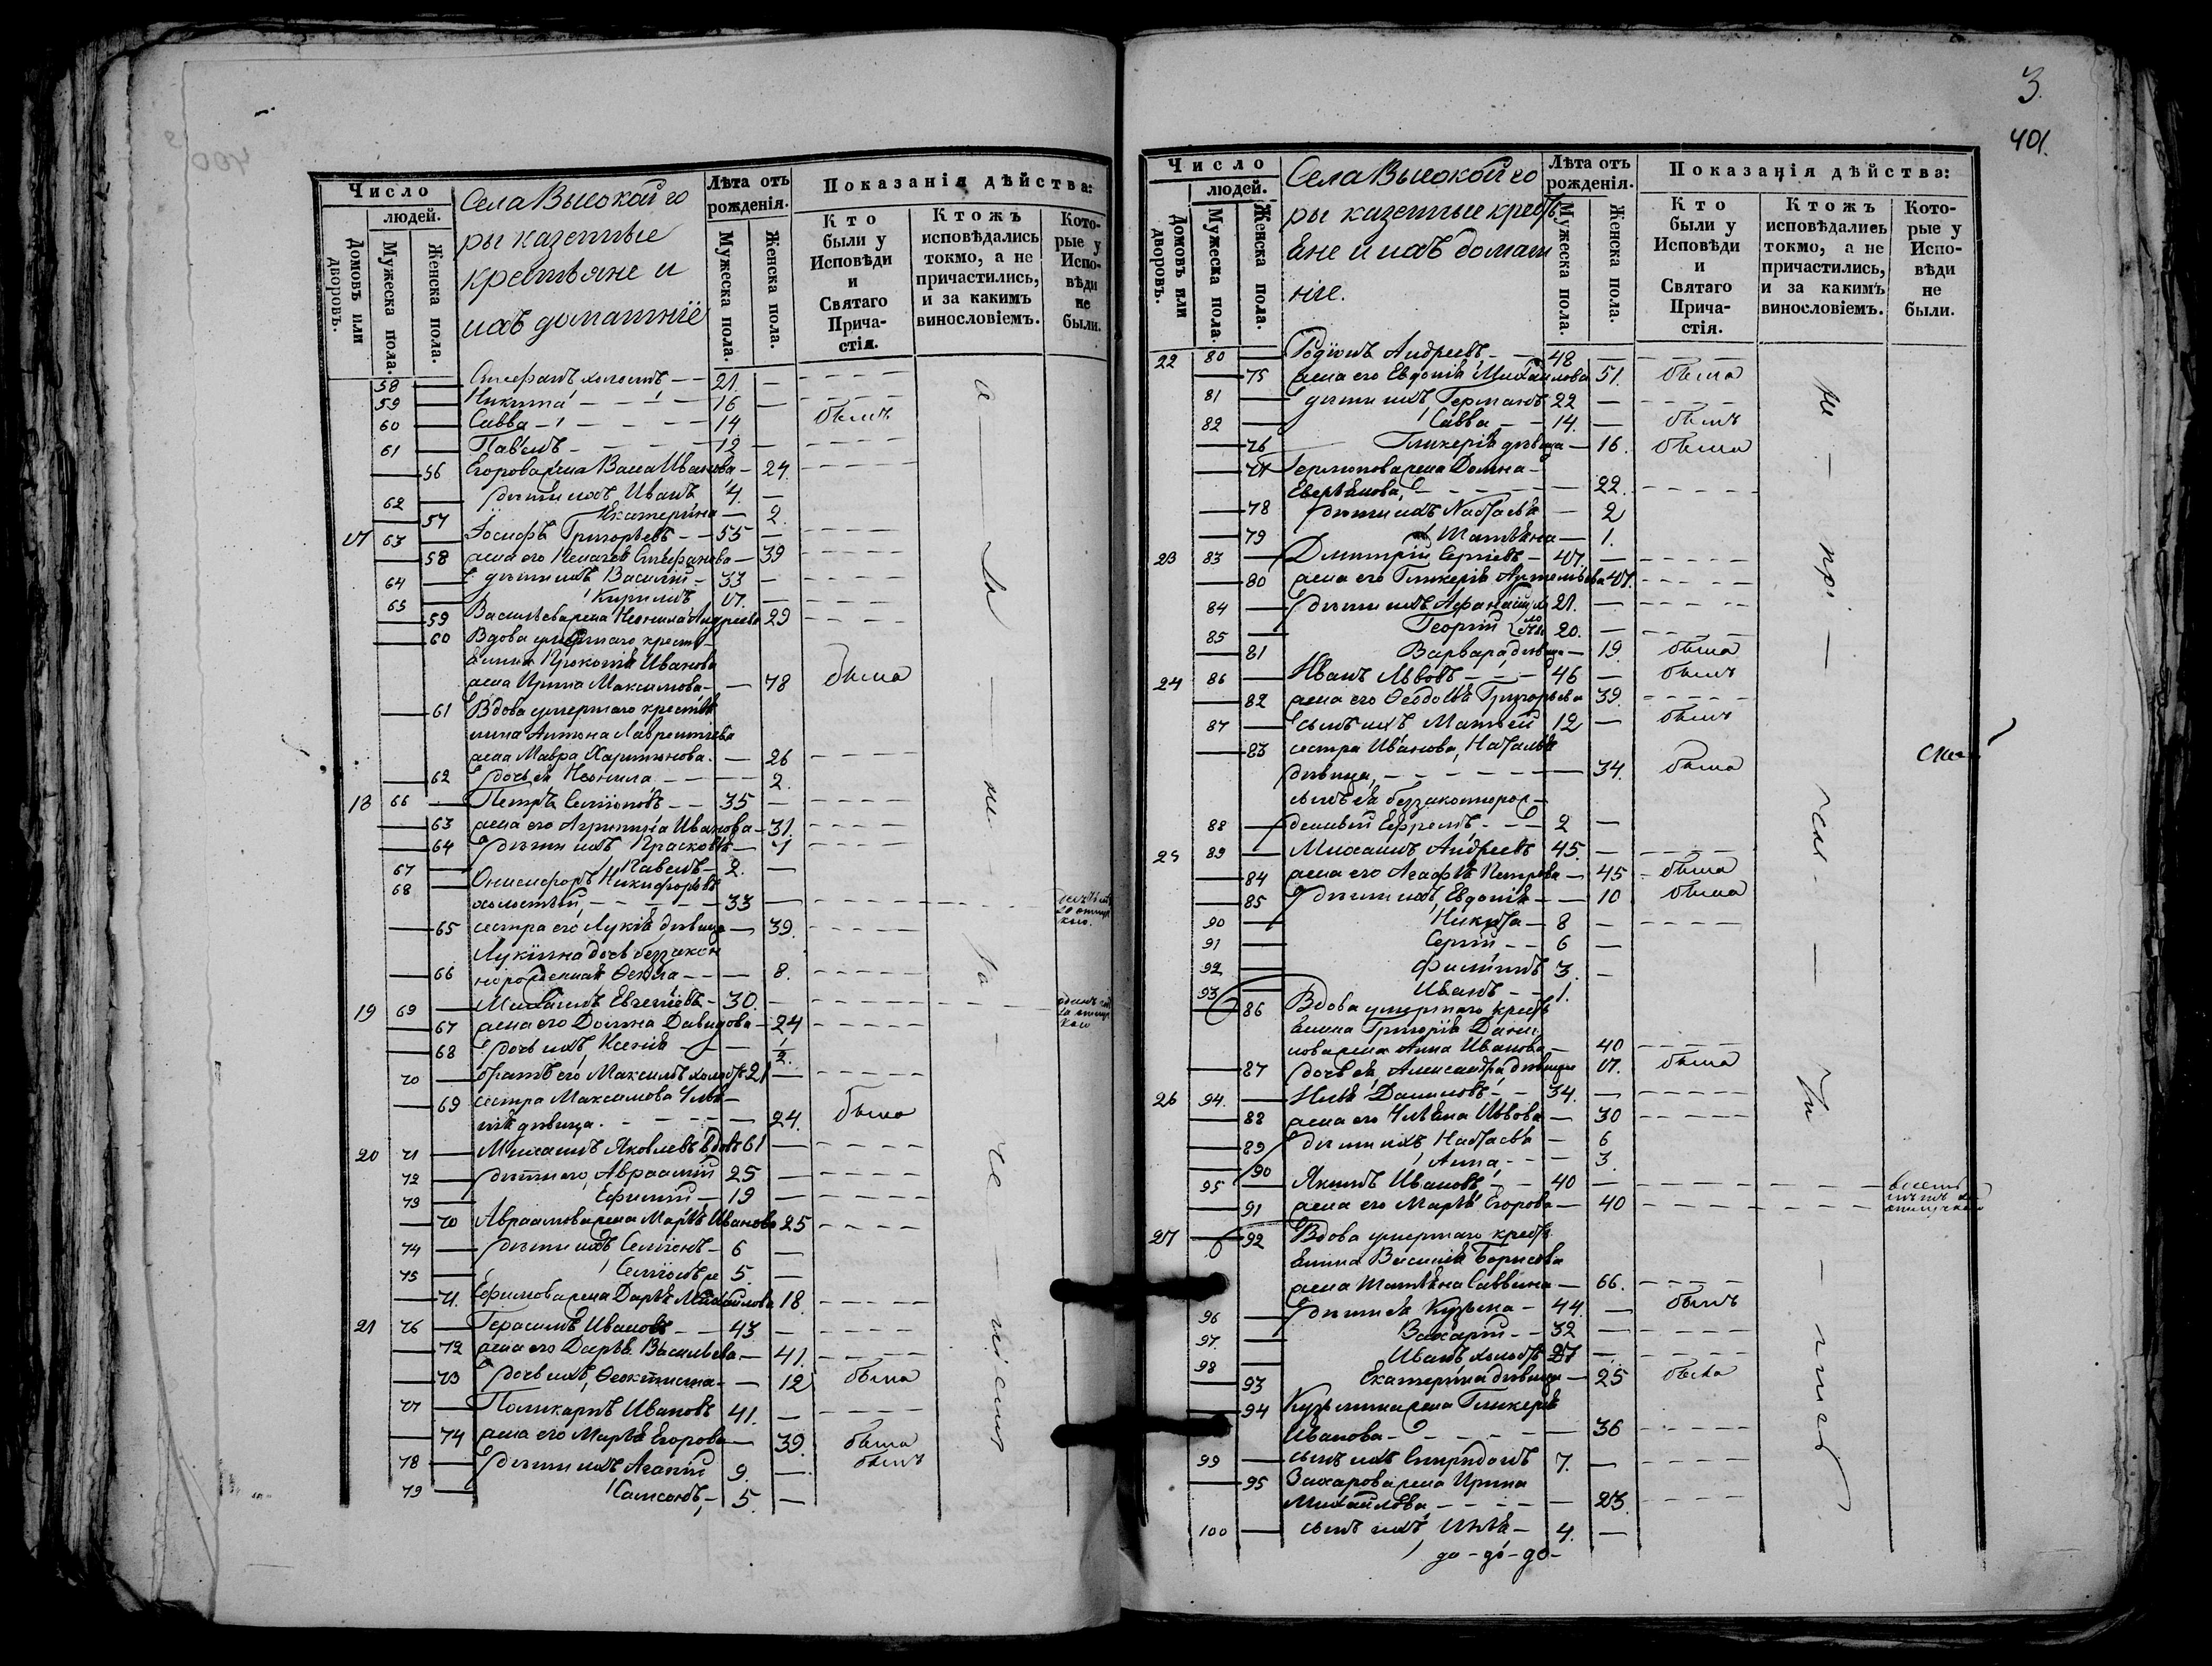 Число
людей.
Домовъ или дворовъ.
Мужеска пола.
Женска пола.
Села Высокой го
ры казенные
крестьяне и
ихъ домашнiе
Лѣта отъ рожденiя.
Мужеска пола.
Женска пола.
Показанiя дѣйства:
Кто были у Исповѣди и Святаго Прича- стiя.
Ктожъ исповѣдались токмо, а не причастились, и за какимъ винословiемъ.
Кото- рые у Испо- вѣди не были.
58 Стефанъ холостъ 21.
59 Никита 16
60 Савва 14 былъ
61 Павелъ 12
56 Егорова жена Васса Иванова 24.
62 дѣти ихъ Иванъ 4.
57 Екатерина 2.
17 63 Iосифъ Григорьевъ 55
58 жена его Стефанова 39
64 дѣти ихъ Василiй 33
65 Кирилъ 17.
59 Васильева жена Неонила Андреева 29
60 Вдова умершаго кресть
янина Прокопiя Иванова
жена Ирина Максимова 78 была
61 Вдова умершаго крестья
нина Антона Лаврентьева
жена Мавра Харитонова 26
62 дочь ея Неонила 2.
18 66 Петръ Семiоновъ 35
63 жена его Агрипина Иванова 31.
64 дѣти ихъ Прасковья 7
67 Павелъ 2.
68 Онисифоръ Никифоровъ
холостый 33
65 сестра его Лукiя дѣвица 39.
Лукiина дочь беззакон
66 норожденная Фекла 8.
19 69 Михаилъ Евгенiевъ 30.
67 жена его Домна Давыдова 24
68 дочь ихъ Ксенiя 1/2.
70 братъ его Максимъ холостъ 21
69 сестра Максимова Улья
нiя дѣвица 24. была
20 71 Михаилъ Яковлевъ вдовъ 61
72 дѣти его, Авраамiй 25
73 Ефимiй 19
70 Авраамова жена Марѳа Иванова 25
74 дѣти ихъ Семiонъ 6
75 Семiонъ же 5.
71. Ефимова жена Дарья Михайлова 18.
21 76 Герасимъ Ивановъ 43
72 жена его Дарья Васильева 41.
73 дочь ихъ, Феоктиста 12 была
77 Поликарпъ Ивановъ 41.
74 жена его Марѳа Егорова 39. была
78 дѣти ихъ Агапiй 9. былъ
79 Самсонъ, 5.
3.
401.
Число
людей.
Домовъ или дворовъ.
Мужеска пола.
Женска пола.
Села Высокой го
ры казенные кресть
яне и ихъ домаш
нiе.
Лѣта отъ рожденiя.
Мужеска пола.
Женска пола.
Показанiя дѣйства:
Кто были у Исповѣди и Святаго Прича- стiя.
Ктожъ исповѣдались токмо, а не причастились, и за какимъ винословiемъ.
Кото- рые у Испо- вѣди не были.
22 80 Родiонъ Андреевъ 48
75 жена его Евдокiя Михайлова 51. была
81 дѣти ихъ Германъ 22
82 Савва 14. былъ
76 Гликерiя дѣвица 16. была
77 Германова жена Домна
22.
78 дѣти ихъ Настасья 2
79 Татьяна 1.
23 83 Димитрiй Сергiевъ 47.
80 жена его Гликерiя Артемьева 47.
84 дѣти ихъ Афанасiй 21.
85 Георгiй 20.
81 Варвара дѣвица 19. была
24 86 Иванъ Львовъ 46 былъ
82 жена его Феодосья Григорьева 39.
87 сынъ ихъ Матвей 12 былъ
83 сестра Иванова, Наталья
дѣвица, 34. была
сынъ ея беззаконнорож
88 денный Ефремъ 2
25 89 Михаилъ Андреевъ 45.
84 жена его Агафья Петрова 45 была
85 дѣти ихъ, Евдокiя 10 была
90 Никита 8
91 Сергiй 6
92 Филипъ 3.
93 Иванъ 1.
86 Вдова умершаго кресть
янина Григорiя Дани
лова жена Анна Иванова 40
87 дочь ея, Александра дѣвица 17. была
26 94. Илья Даниловъ 34.
88 жена его Ульяна Львова 30
89 дѣти ихъ Настасья 6
90 Анна 3.
95 Якимъ Ивановъ 40
91 жена его Марѳа Егорова 40
27 92 Вдова умершаго кресть
янина Василiя Борисова
жена Татьяна Саввина 66.
96 дѣти ея Кузьма 44. былъ
97. Захарiй 32
98 Иванъ холостъ 27
93 Екатерина дѣвица 25 была
94 Кузьмина жена Гликерiя
Иванова 36
99 сынъ ихъ Спиридонъ 7.
95 Захарова жена Ирина
Михайлова 23.
100 сынъ ихъ Илья 4.